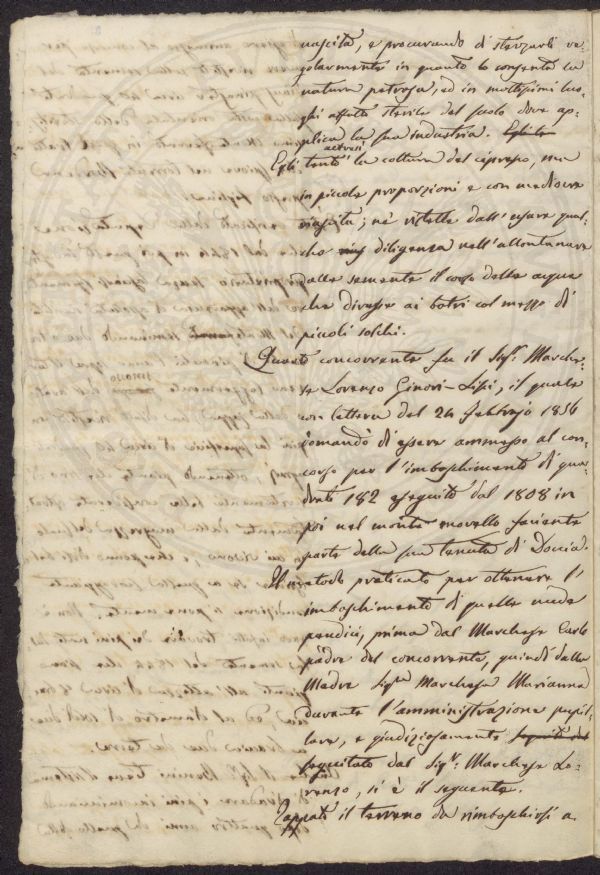 nascita, e procurando di sterzarli re-
golarmente in quanto lo consente la
natura petrosa, ed in moltissimi luo-
ghi affatto sterile del suolo dove ap-
plica la sua industria.
altresì
Egli tentò la coltura del cipresso, ma
in piccole proporzioni e con mediocre
riescita; nè ristette dall'usare qual-
che diligenza nell'allontanare
dalle semente il corso delle acque
che diresse ai botri col mezzo di
piccoli solchi.
Quarto concorrente fu il Sigr. Marche-
se Lorenzo Ginori-Lisci, il quale
con lettera del 24 febbrajo 1856
domandò di essere ammesso al con-
corso per l'imboschimento di qua-
drati 182 eseguito dal 1808 in
poi nel monte morello facente
parte della sua tenuta di Doccia.
Il metodo praticato per ottenere l'
imboschimento di quelle nude
pendici, prima dal Marchese Carlo
padre del concorrente, quindi dalla
Madre Sigra. Marchesa Marianna
durante l'amministrazione pupil-
lare, e giudiziosamente
seguitato dal Sigr. Marchese Lo-
renzo, si è il seguente.
il terreno da rimboschirsi a